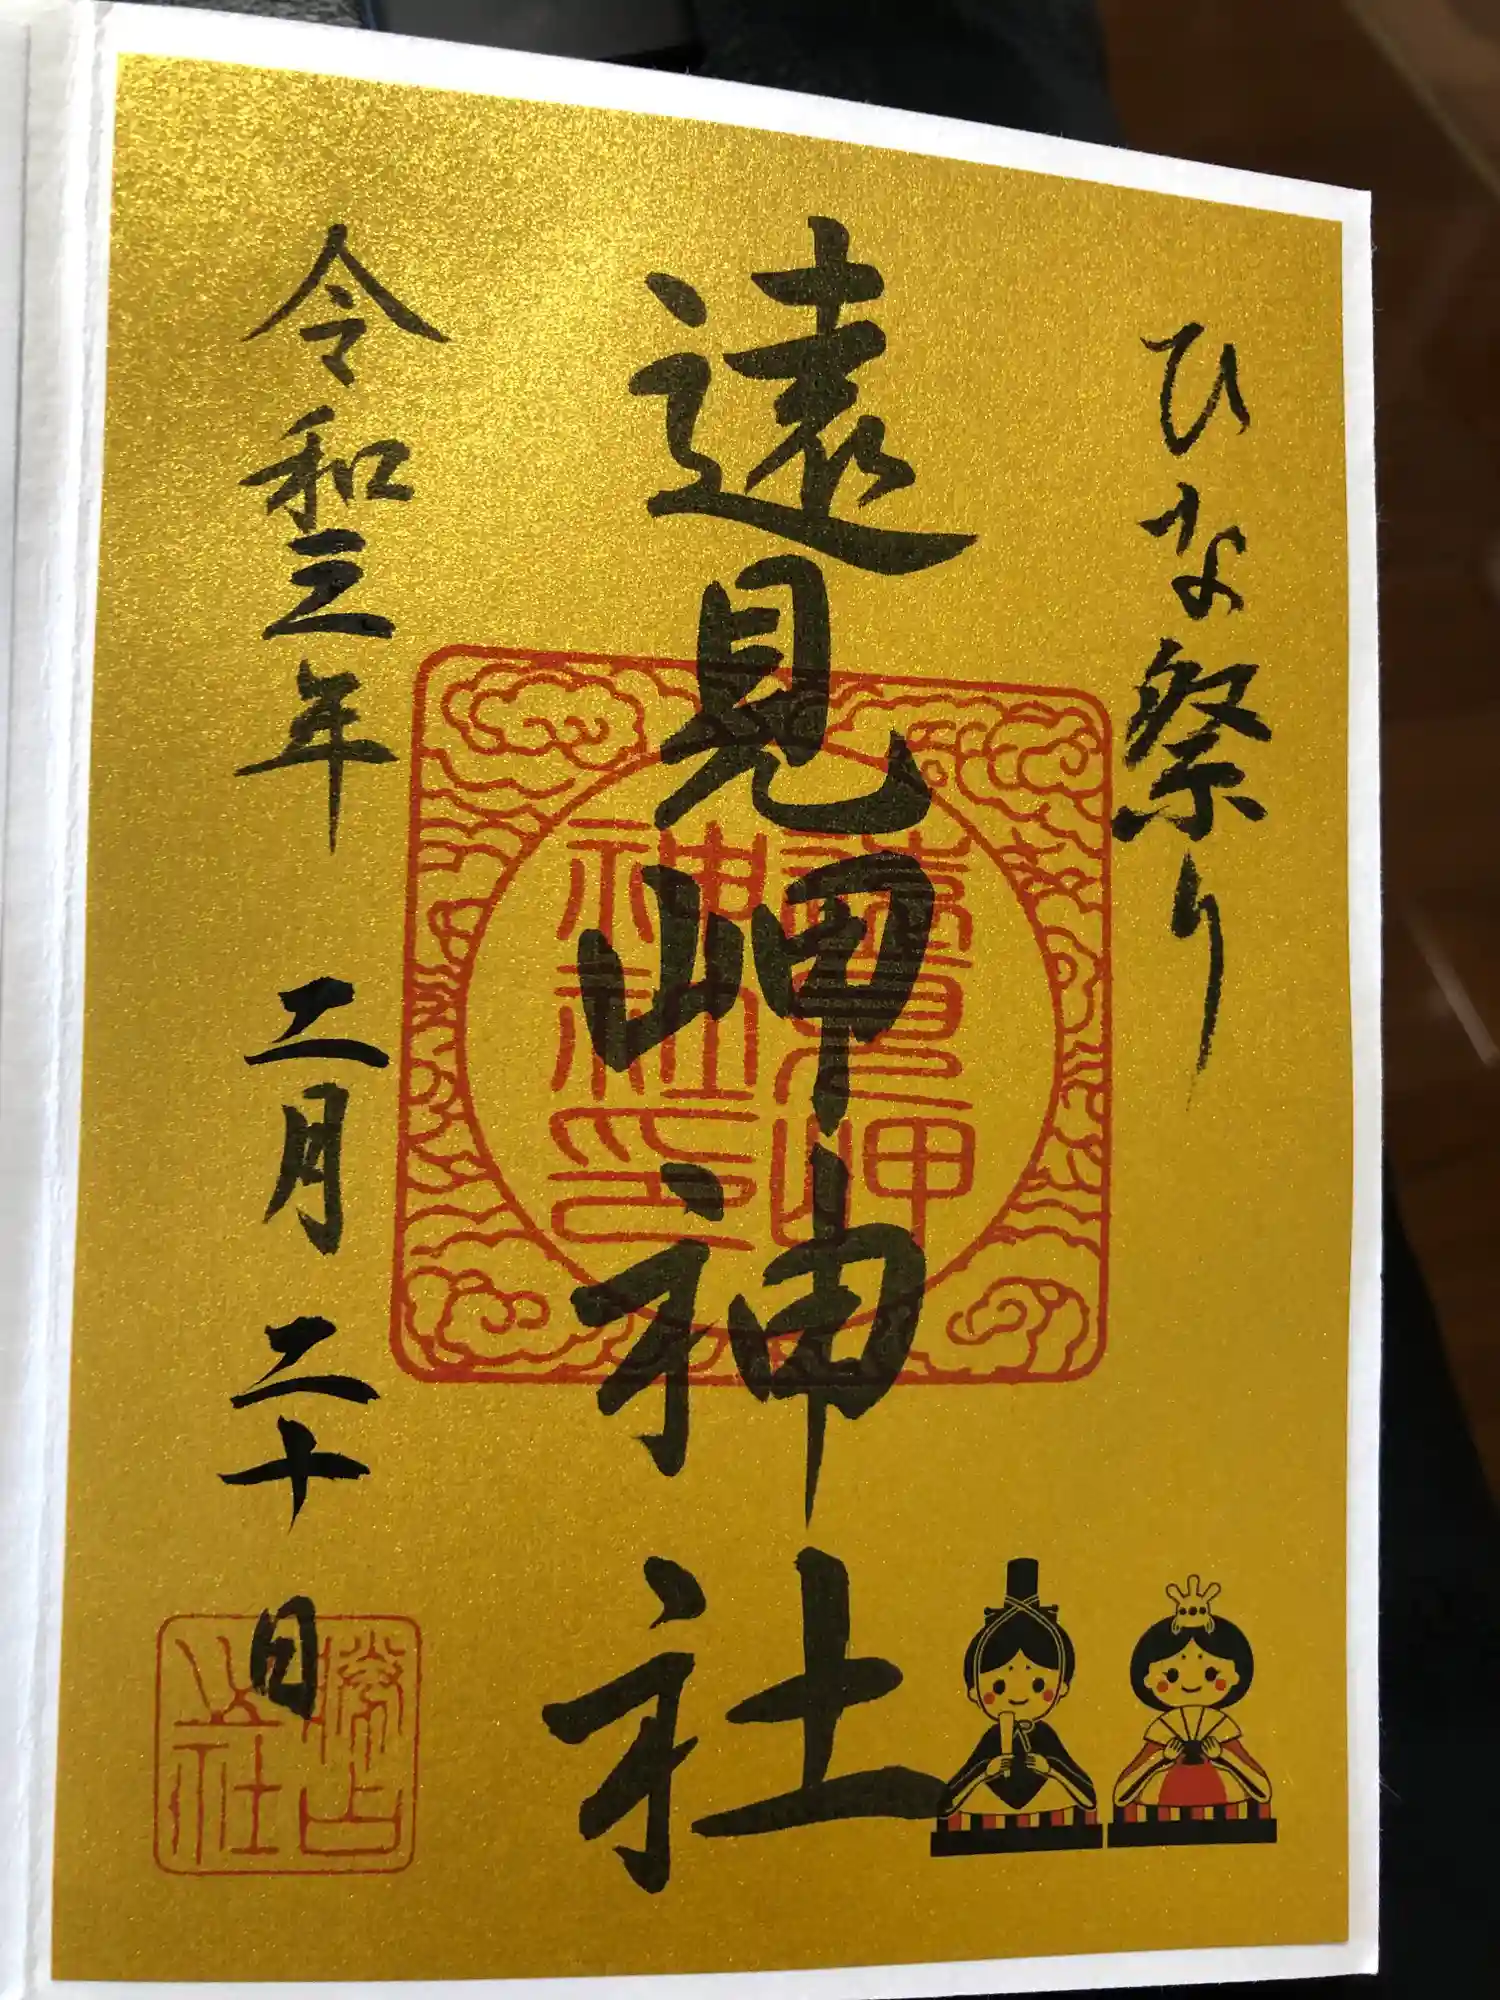 ひな祭り
遠見岬神社
令和三年 二月 二十日
遠見岬
神社印
勝占
社